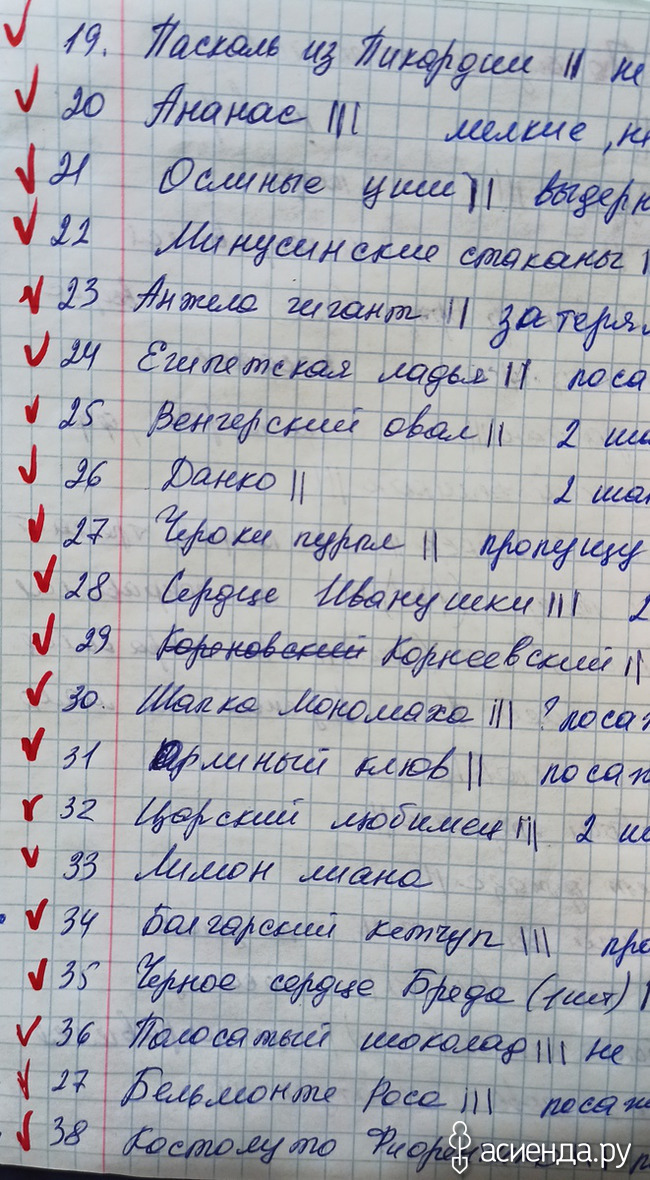 19. Паскаль из Пикардии || не
20 Ананас ||| мелкие, не
21 Ослиные уши || выдерн
22 Минусинские стаканы |
23 Анжела гигант || затерял
24 Египетская ладья || поса
25 Венгерский овал || 2 шт
26 Данко || 2 шт
27 Чероки пурпл || пропущу
28 Сердце Иванушки ||| 2
29 Кореновский Корнеевский ||
30. Шапка Мономаха ||| ? посаж
31 Орлиный клюв || посаж
32 Царский любимец ||| 2 шт
33 Лимон лиана
34 Болгарский кетчуп ||| про
35 Черное сердце Бреда (1 шт) |
36 Полосатый шоколад ||| не
27 Бельмонте Роса ||| посаж
38 Костолуто Фиорентино
асиенда.ру